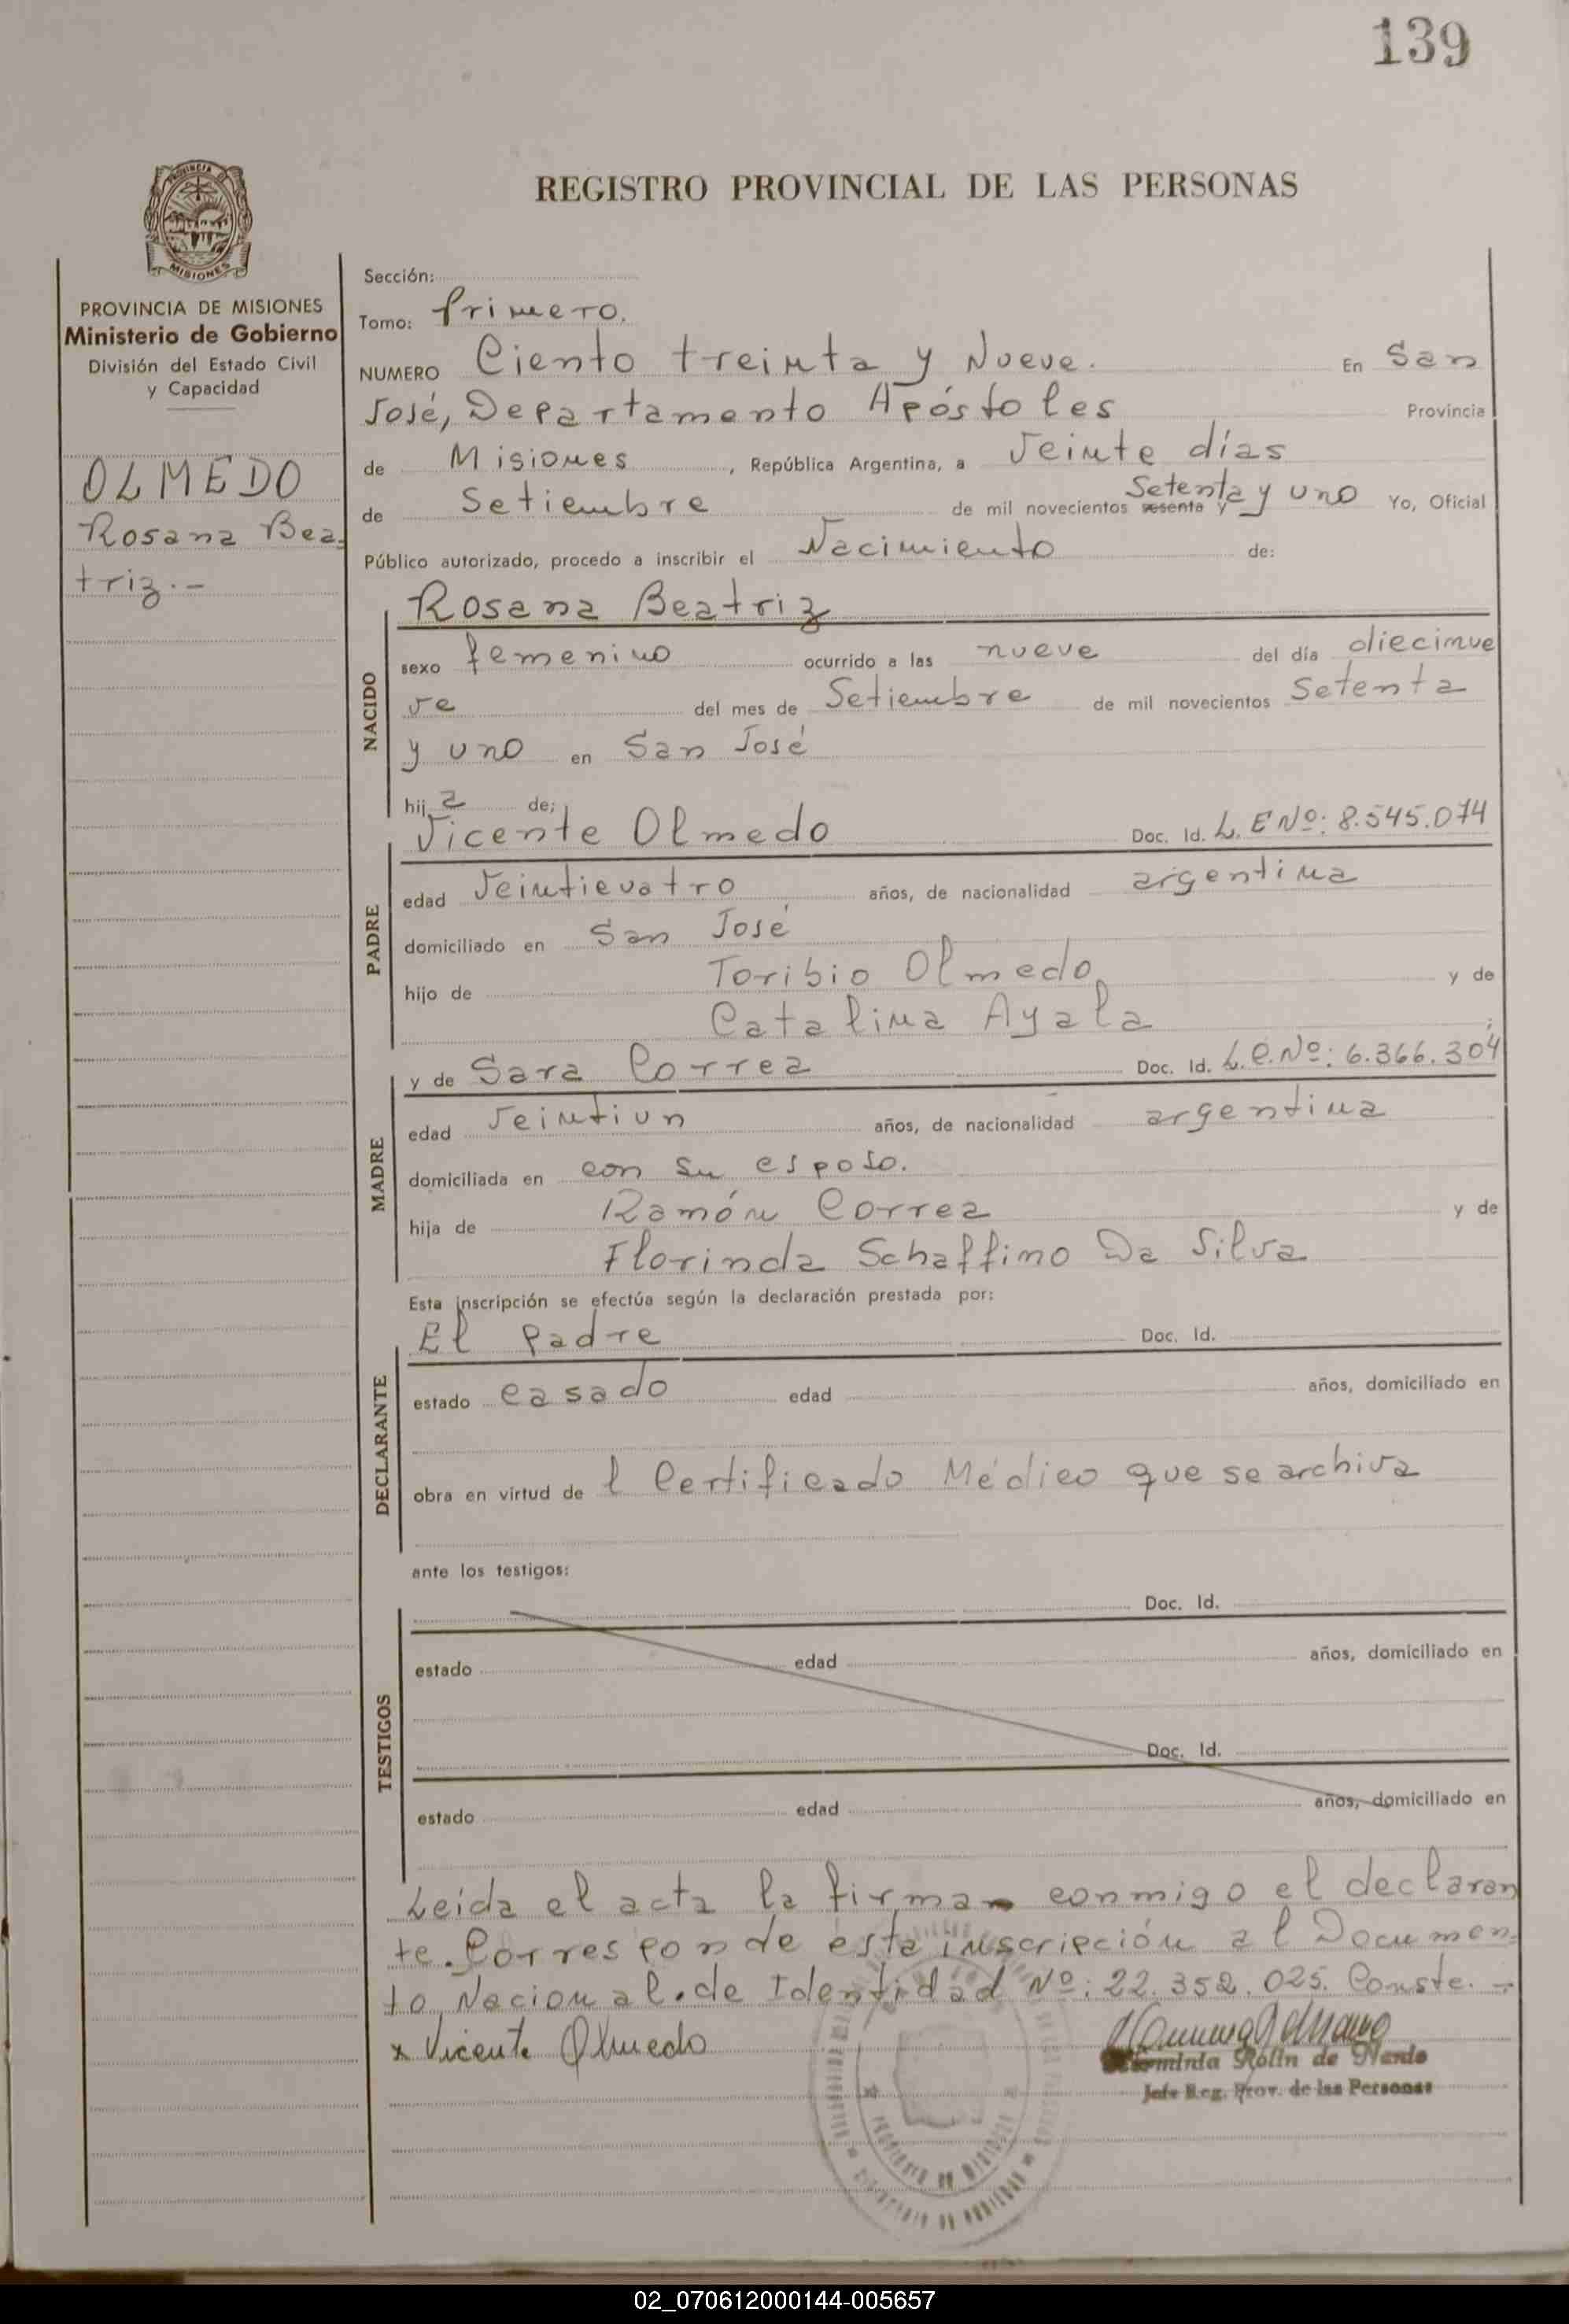 139
REGISTRO PROVINCIAL DE LAS PERSONAS
PROVINCIA DE MISIONES
Ministerio de Gobierno
División del Estado Civil
y Capacidad
OLMEDO
Rosana Bea-
triz.-
Sección:
Tomo: Primero.
NUMERO Ciento treinta y Nueve. En San
José, Departamento Apóstoles Provincia
de Misiones, República Argentina, a Veinte días
de Setiembre de mil novecientos sesenta y Setenta y uno Yo, Oficial
Público autorizado, procedo a inscribir el Nacimiento de:
NACIDO
Rosana Beatriz
sexo femenino ocurrido a las nueve del día diecinue
ve del mes de Setiembre de mil novecientos Setenta
y uno en San José
hij a de:
PADRE
Vicente Olmedo Doc. Id. L. E Nº: 8.545.074
edad Veinticuatro años, de nacionalidad argentina
domiciliado en San José
hijo de Toribio Olmedo y de
Catalina Ayala
MADRE
y de Sara Correa Doc. Id. L.C.Nº: 6.366.304
edad Veintiun años, de nacionalidad argentina
domiciliada en con su esposo.
hija de Ramón Correa y de
Florinda Schaffino Da Silva
Esta inscripción se efectúa según la declaración prestada por:
DECLARANTE
El Padre Doc. Id.
estado casado edad años, domiciliado en
obra en virtud de l Certificado Médico que se archiva
ante los testigos:
TESTIGOS
Doc. Id.
estado edad años, domiciliado en
Doc. Id.
estado edad años, domiciliado en
Leída el acta la firma conmigo el declaran
te. Corresponde esta inscripción al Documen-
to Nacional de Identidad Nº: 22.352.025. Conste.-
x Vicente Olmedo
Herminia Rolin de Nardo
Jefe Reg. Prov. de las Personas
PROVINCIA DE MISIONES
02_070612000144-005657